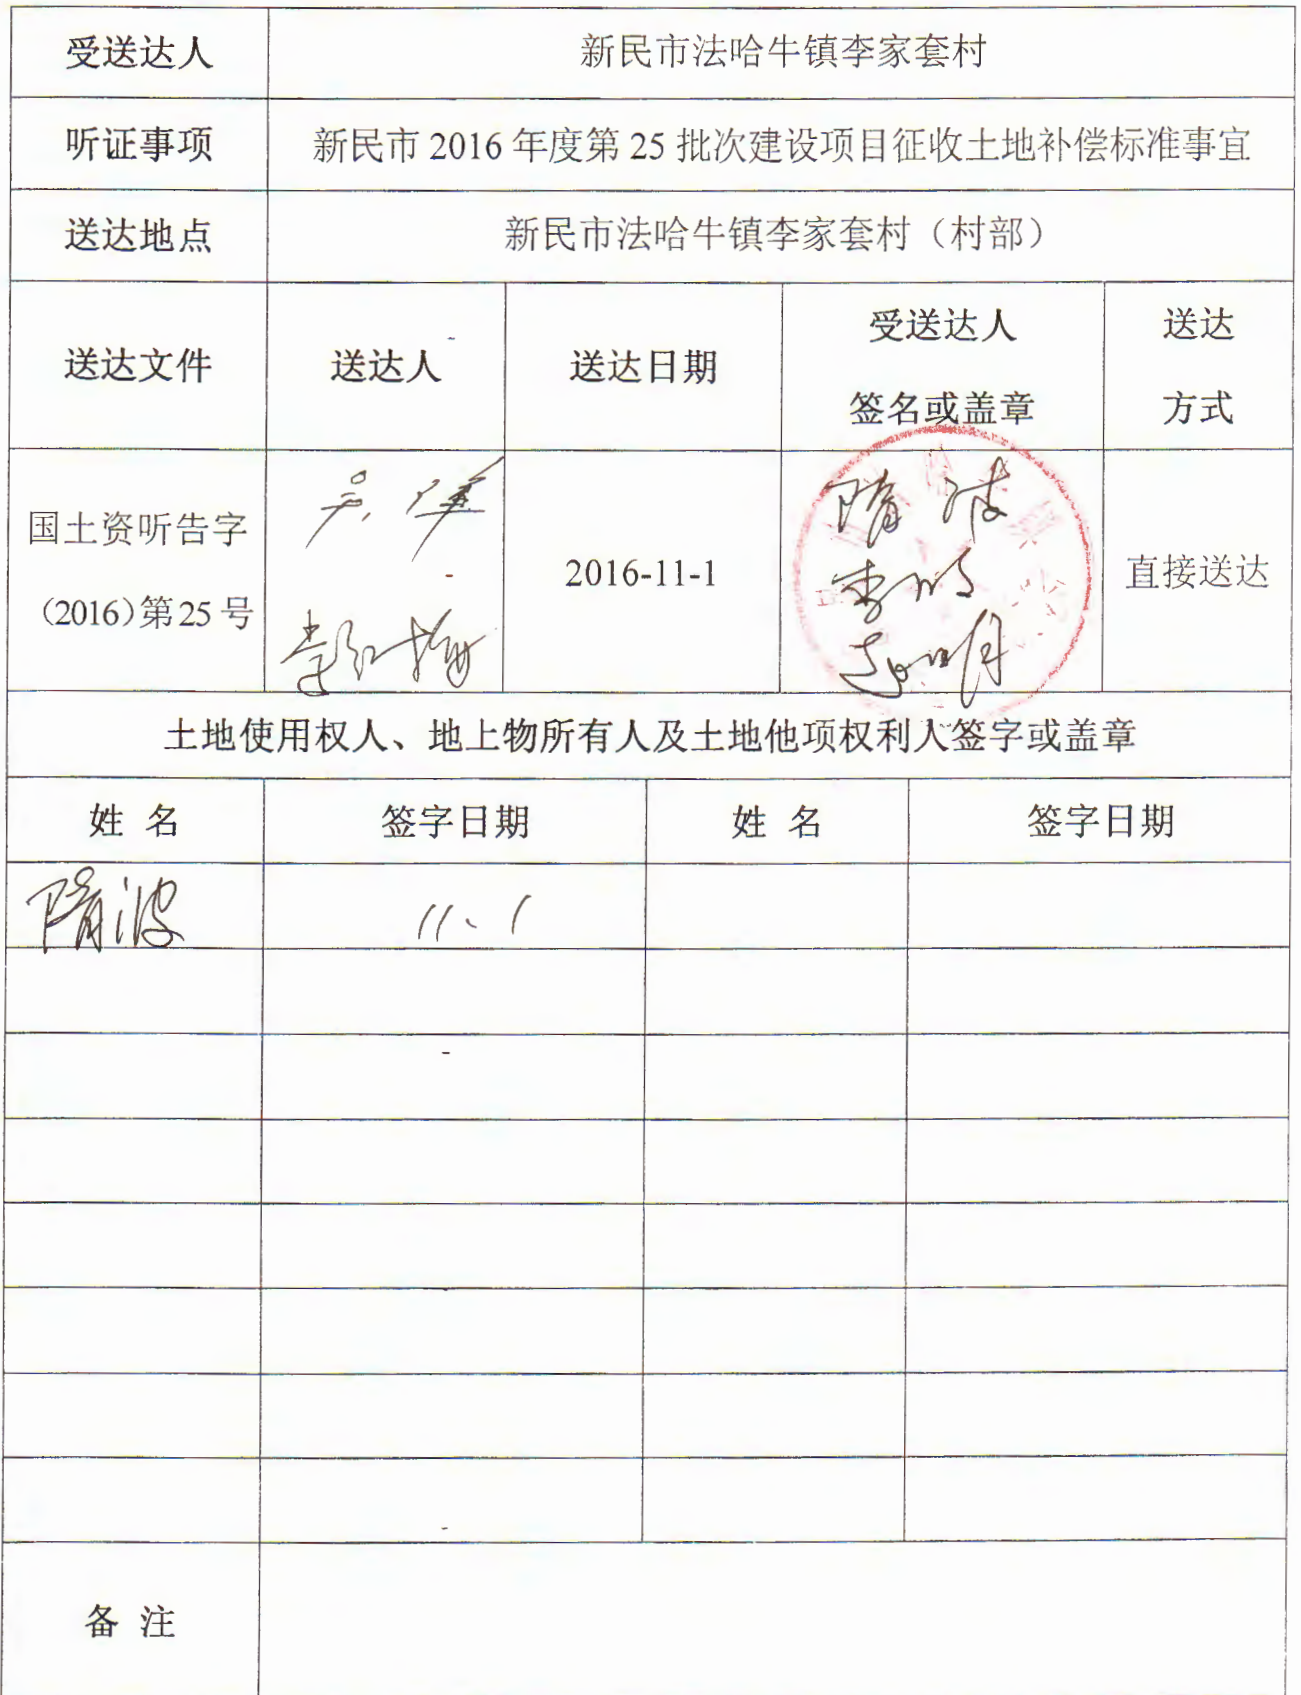 受送达人 新民市法哈牛镇李家套村
听证事项 新民市 2016 年度第 25 批次建设项目征收土地补偿标准事宜
送达地点 新民市法哈牛镇李家套村（村部）
送达文件 送达人 送达日期 受送达人 送达
签名或盖章 方式
国土资听告字
（2016）第 25 号
2016-11-1
隋波
李明
直接送达
土地使用权人、地上物所有人及土地他项权利人签字或盖章
姓 名 签字日期 姓 名 签字日期
隋波 11.1
备 注